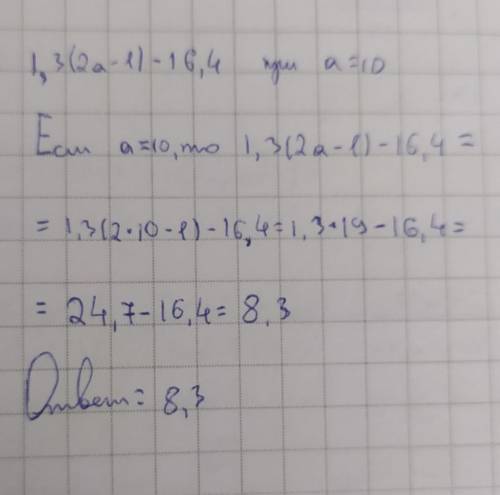 1,3(2a-1)-16,4 при a=10
Если a=10, то 1,3(2a-1)-16,4=
=1,3(2·10-1)-16,4=1,3·19-16,4=
=24,7-16,4=8,3
Ответ= 8,3